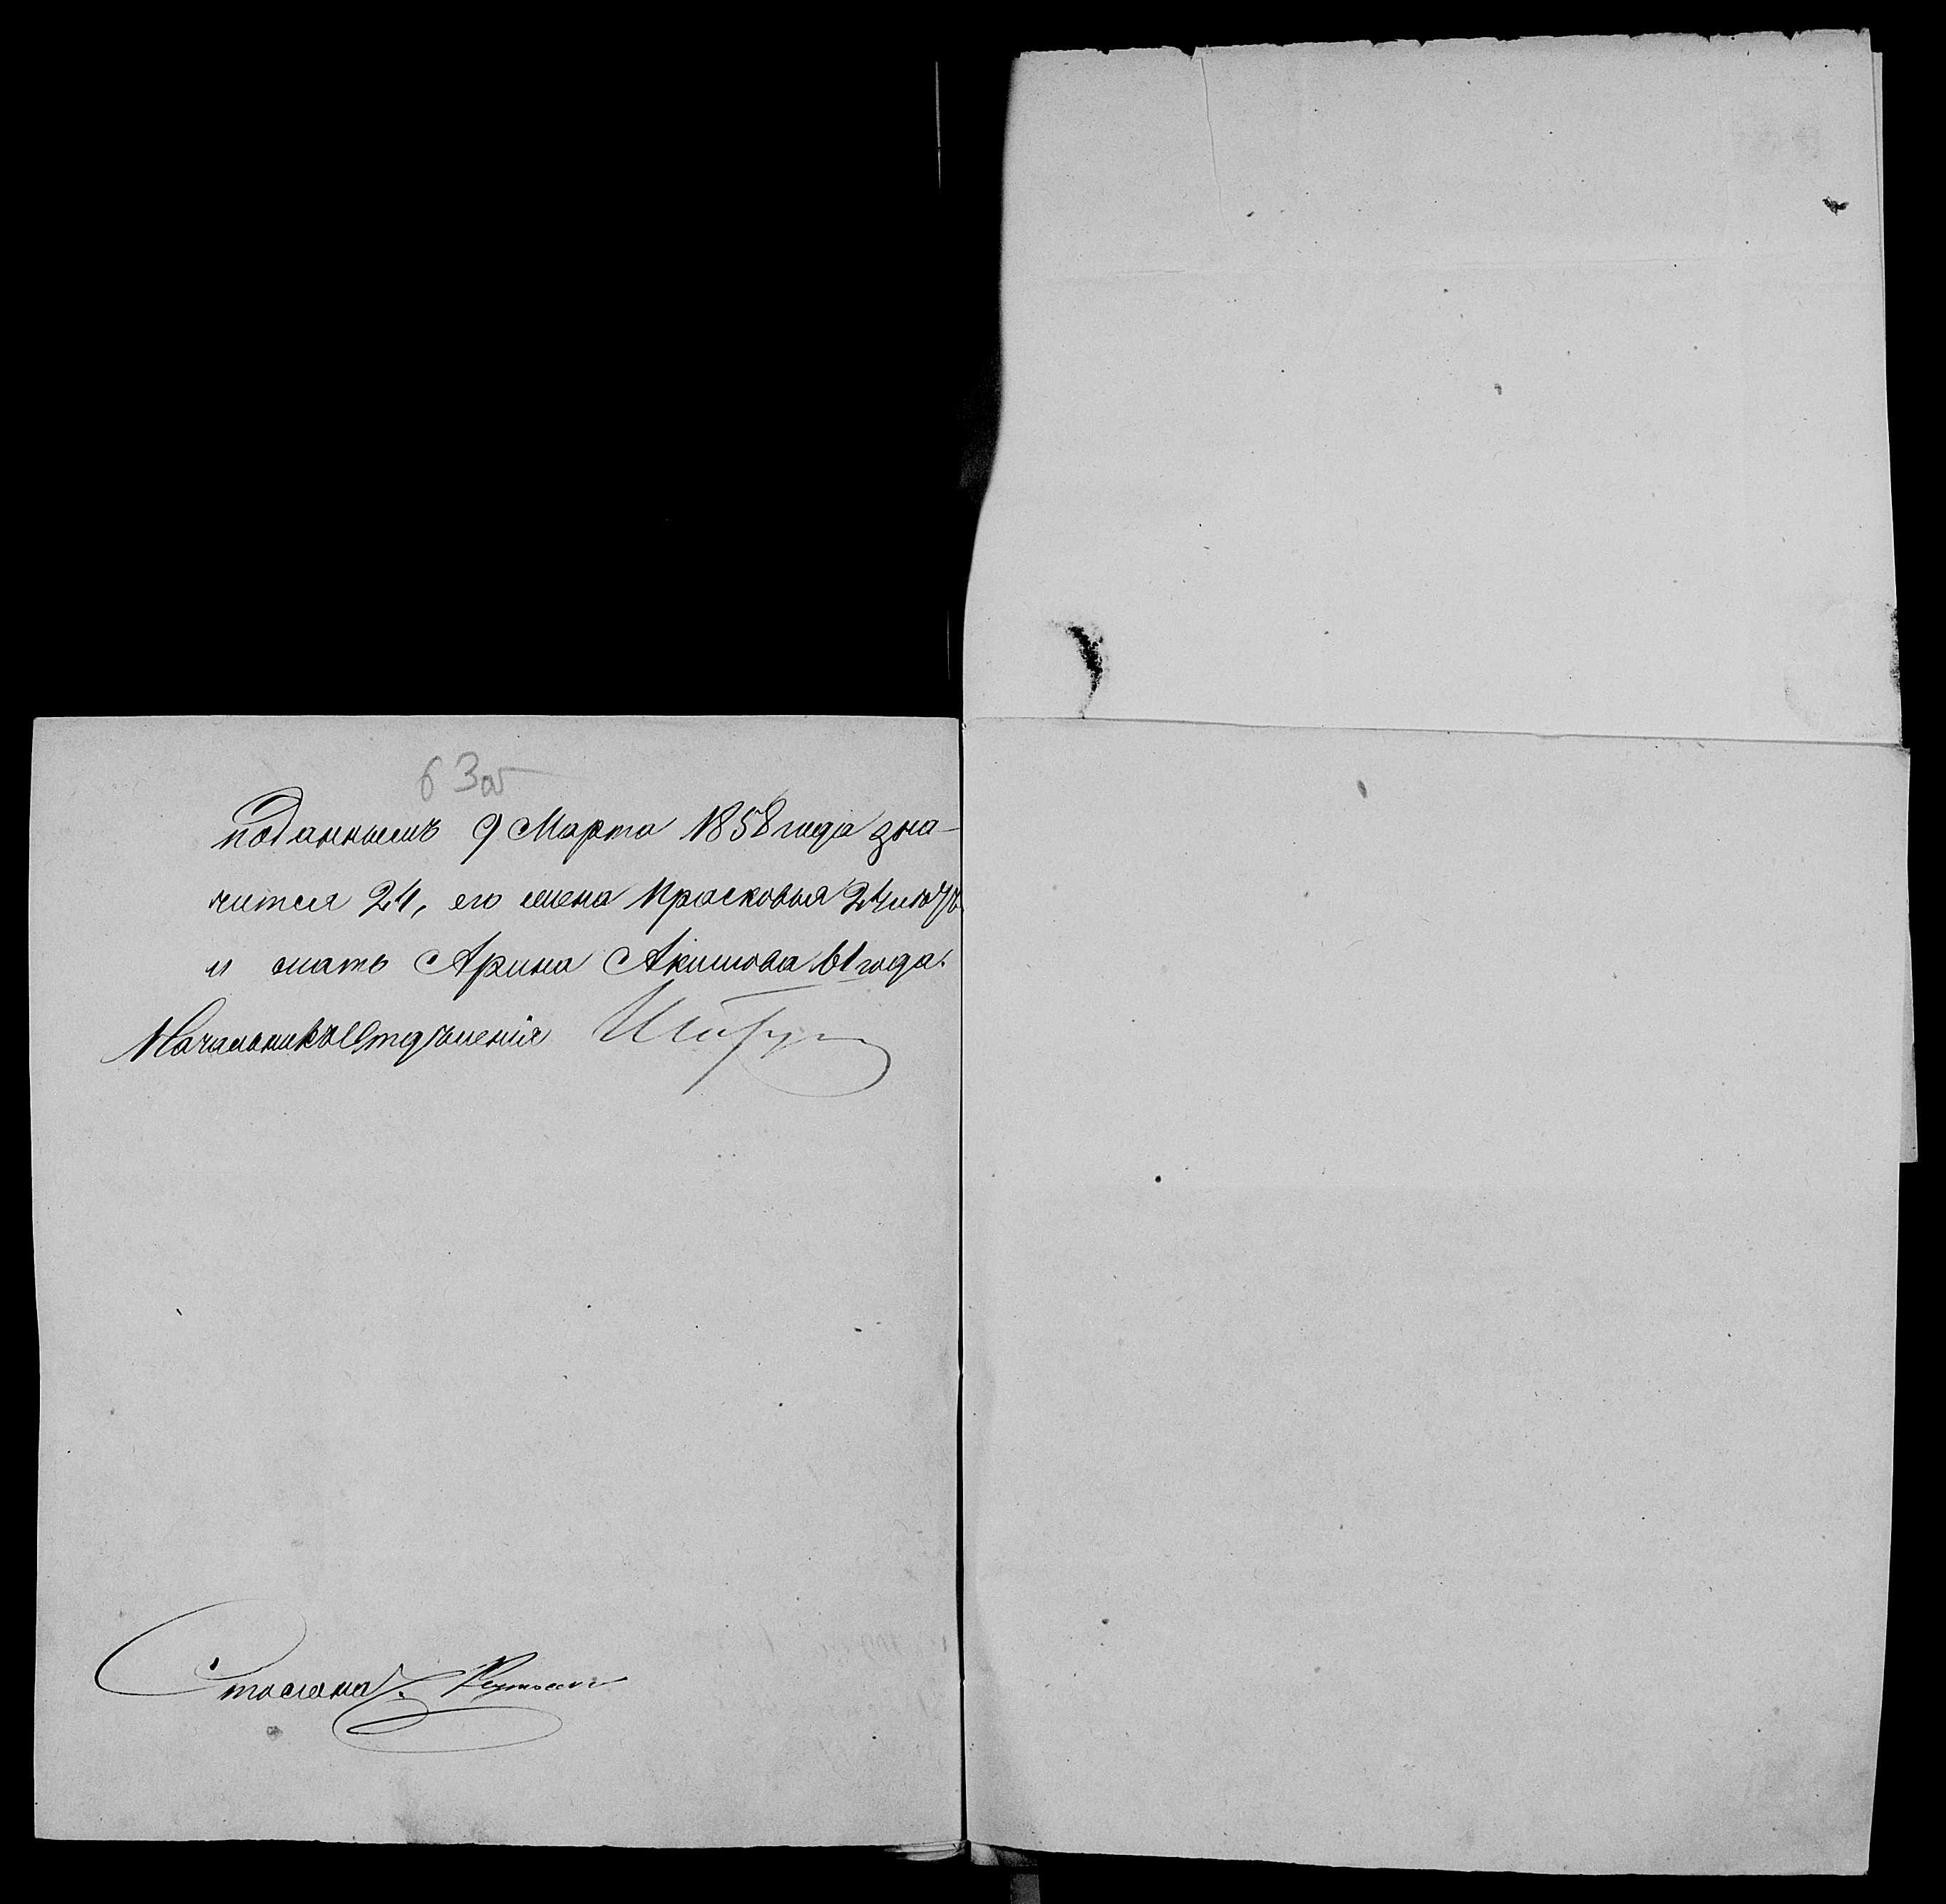 63об
поданнымъ 9 Марта 1858 года зна-
чится 24, его жена Прасковья 24 лѣтъ
и мать Арина Акимова 61 года.
Начальникъ Отдѣленія
Столонач.